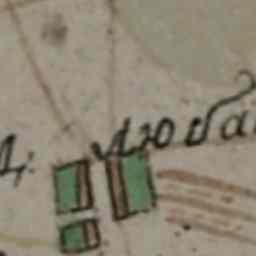 Д: Любан